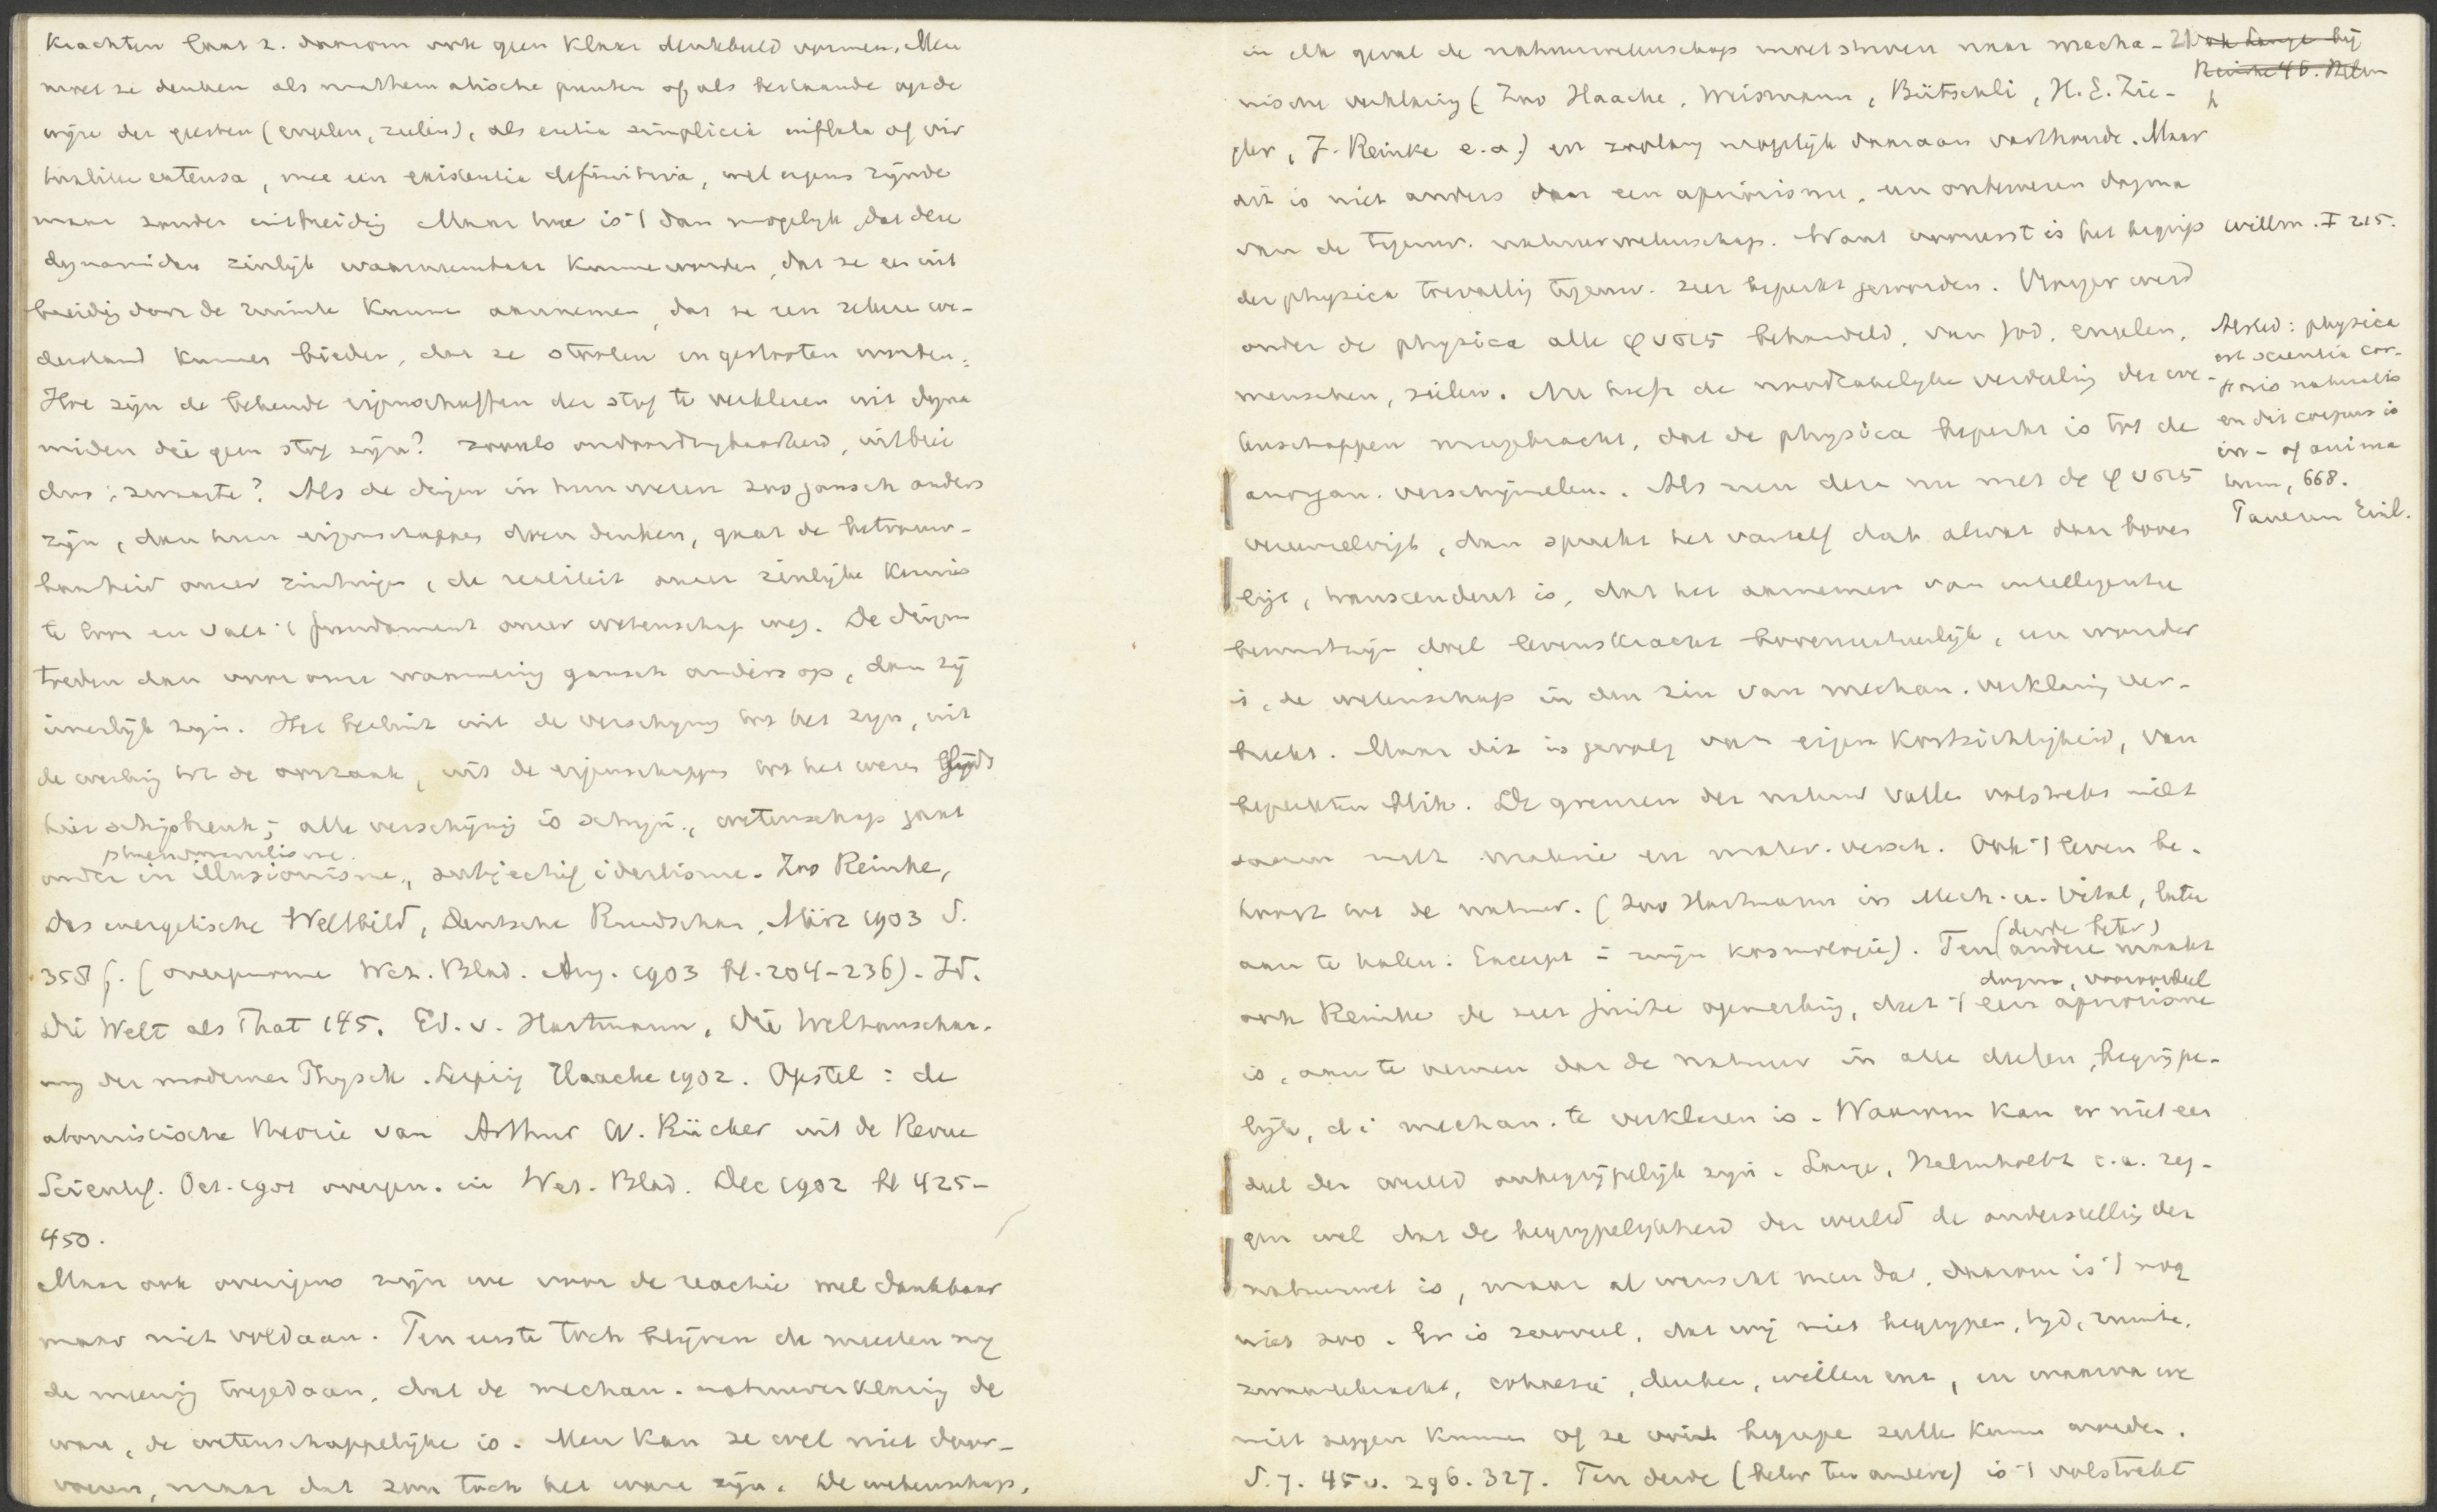 Krachten laat z. daarom ook geen klaar denkbeeld vormen. Men
moet ze denken als mathematische punten of als bestaande op de
wijze der geesten (engelen, zielen), als entia simplicia
extensa, met een existentia definitiva, wel ergens zijnde
maar zonder uitbreiding Maar hoe is 't dan mogelijk, dat deze
dynamiden zinlijk waarneembaar kunnen worden, dat ze een uit
breidig door de ruimte kunnen aannemen, dat ze een zekere we-
derstand kunnen bieden, dat ze stooten en gestooten worden.
Hoe zijn de bekende eigenschappen der stof te verklaren uit dyna
miden die geen stof zijn? zooals ondoordringbaarheid, uitbrei
ding, zwaarte? Als de dingen in hun wezen zoo gansch anders
zijn, dan hun eigenschappen doen denken, gaat de betrouw-
baarheid onzer zintuigen, de realiteit onzer zinlijke kennis
te loor en valt 't fundament onzer wetenschap weg. De dingen
treden dan voor onze waarneming gansch anders op, dan zij
innerlijk zijn. Het besluit uit de verschijning tot het zijn, uit
de werking tot de oorzaak, uit de eigenschappen tot het wezen lijdt
hier schipbreuk; alle verschijning is schijn, wetenschap gaat
phaenomenalisme.
onder in illusionisme, subjectief idealisme. Zoo Reinke,
Das energetische Weltbild, Deutsche Rundschau, März 1903 S.
358 f. (overgenomen Wet. Blad. Aug. 1903 bl. 204-236). Id.
Die Welt als That 145. Ed. v. Hartmann, Die Weltanschau-
ung der modernen Physik. Leipzig Haacke 1902. Opstel: de
atomistische theorie van Arthur W. Rücker uit de Revue
Scientif. Oct. 1901 overgen. in Wet. Blad. Dec 1902 bl 425-
450.
Maar ook overigens zijn we voor de reactie wel dankbaar
maar niet voldaan. Ten eerste toch blijven de meesten nog
de mening toegedaan, dat de mechan. natuurverklaring de
ware, de wetenschappelijke is. Men kan ze wel niet door-
voeren, maar dat zou toch het ware zijn. De wetenschap,
in elk geval de natuurwetenschap moet streven naar mecha-
nische verklaring (Zoo Haacke, Weismann, Bütschli, H. E. Zie-
gler, J. Reinke e.a.) en zoolang mogelijk daaraan vasthoude. Maar
dit is niet anders dan een apriorisme, een onbewezen dogma
van de tegenw. natuurwetenschap. Want vooreerst is het begrip
der physica toevallig tegenw. zeer beperkt geworden. Vroeger werd
onder de physica alle φυσις behandeld, van God, engelen,
menschen, zielen. Nu heeft de noodzakelijke verdeeling der we-
tenschappen meegebracht, dat de physica beperkt is tot de
anorgan. verschijnselen. Als men deze nu met de φυσις
vereenzelvigt, dan spreekt het vanself dat alwat daar boven
ligt, transcendent is, dat het aannemen van intelligentie
bewustzijn doel levenskracht bovennatuurlijk, een wonder
is, de wetenschap in den zin van mechan. verklaring ver-
breekt. Maar dit is gevolg van eigen kortzichtigheid, van
beperkten blik. De grenzen der natuur vallen volstrekt niet
samen met materie en mater. versch. Ook 't leven be-
hoort tot de natuur. (Zoo Hartmann in Mech. u. Vital, later
aan te halen. Excerpt = mijn kosmologie). Ten andere maakt
(derde beter)
dogma, vooroordeel
ook Reinke de zeer juiste opmerking, dat 't een apriorisme
is, aan te nemen dat de natuur in alle deelen, begrijpe-
lijk, d i mechan. te verklaren is. Waarom kan er niet een
deel der wereld onbegrijpelijk zijn. Lange, Helmholtz e.a. zeg-
gen wel dat de begrijpelijkheid der wereld de onderstelling der
natuurwet is, maar al wenscht men dat, daarom is 't nog
niet zoo. Er is zooveel, dat wij niet begrijpen, tijd, ruimte,
zwaartekracht, cohaesie, denken, willen enz, en waarvan we
niet zeggen kunnen of ze ooit begrepen zullen kunnen worden.
S. 7. 45 v. 296. 327. Ten derde (beter ten andere) is 't volstrekt
21
ook Lange bij
Reinke 46. Helm
h
Willm. I 215.
Alsted: physica
est scientia cor-
poris naturalis
en dit corpus is
in- of anima
tum, 668.